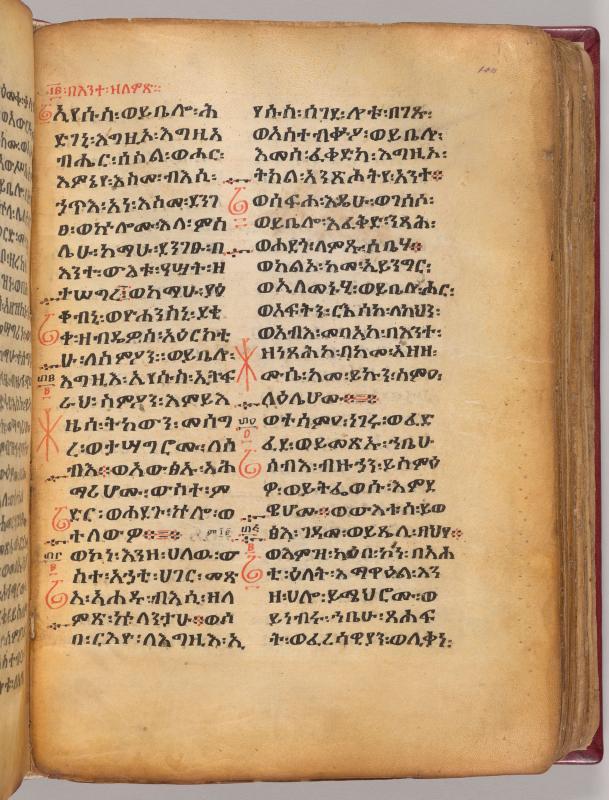 ፲፪፡በእንተ፡ዘለምጽ፡፡
ኢየሱስ፡ወይቤሎ፡ኅ
ድገኒ፡እግዚኦ፡እግዚአ
ብሔር፡ሰከል፡ወሖር፡
እምኔየ፡እስመ፡ብእሲ፡
ኃጥእ፡አነ፡እስመ፡ደንገ
ፀ፡ወኵሎሙ፡እለ፡ምስ
ሌሁ፡ከማሁ፡ደንገፁ፡በ
እንተ፡ውእቱ፡ዘ
ተሠግረ፡ወከማሁ፡ያዕ
ቆብኒ፡ወዮሐንስኒ፡ደቂ
ቀ፡ዘብዴዎስ፡አዕርክቲ
ሁ፡ለስምዖን፡፡ወይቤሎ፡
እግዚእ፡ኢየሱስ፡ኢትፍ
ራህ፡ስምዖን፡እምይእ
ዜሰ፡ትከውን፡መሰግ
ረ፡ወታሠግሮሙ፡ለሰ
ብእ፡ወአውፅኡ፡አሕ
ማሪሆሙ፡ውስተ፡ም
ድር፡ወኀደጉ፡ኵሎ፡ወ
ተለውዎ።
ወኮነ፡እንዘ፡ሀለወ፡ው
ስተ፡አሐቲ፡ሀገር፡መጽ
አ፡አሐዱ፡ብእሲ፡ዘለ
ምጽ፡ኵለንታሁ፡ወሶ
በ፡ርእዮ፡ለእግዚእ፡ኢ
የሱስ፡ሰገደ፡ሎቱ፡በገጹ፡
ወአስተብቍዖ፡ወይቤሎ፡
እመሰ፡ፈቀድከ፡እግዚኦ፡
ትክል፡አንጽሖትየ፡አንተ።
ወሰፍሐ፡እዴሁ፡ወገሰሶ፡
ወይቤሎ፡እፈቅድ፡ንጻሕ፡
ወሐደጎ፡ለምጹ፡ሶቤሃ።
ወከልኦ፡ከመ፡ኢይንግር፡
ወኢለመኑሂ፡ወይቤሎ፡ሑር፡
ወአፍትን፡ርእሰከ፡ለካህን፡
ወአብእ፡መባአከ፡በእንተ፡
ዘነጻሕከ፡በከመ፡አዘዘ፡
ሙሴ፡ከመ፡ይኩን፡ስምዐ፡
ላዕሌሆሙ።
ወተሰምዐ፡ነገሩ፡ወፈድ
ፈደ፡ወይመጽኡ፡ኀቤሁ
ሰብእ፡ብዙኃን፡ይስምዕ
ዎ፡ወይትፌወሱ፡እምደ
ዌሆሙ፡ወውእቱሰ፡ይወ
ፅእ፡ገዳመ፡ወይጼሊ፡
ወእምዝ፡ካዕበ፡ኮነ፡በአሐ
ቲ፡ዕለት፡እማዋዕል፡እን
ዘ፡ሀሎ፡ይሜህሮሙ፡ወ
ይነብሩ፡ኀቤሁ፡ጸሐፍ
ት፡ወፈሪሳዊያን፡ወሊቃነ፡